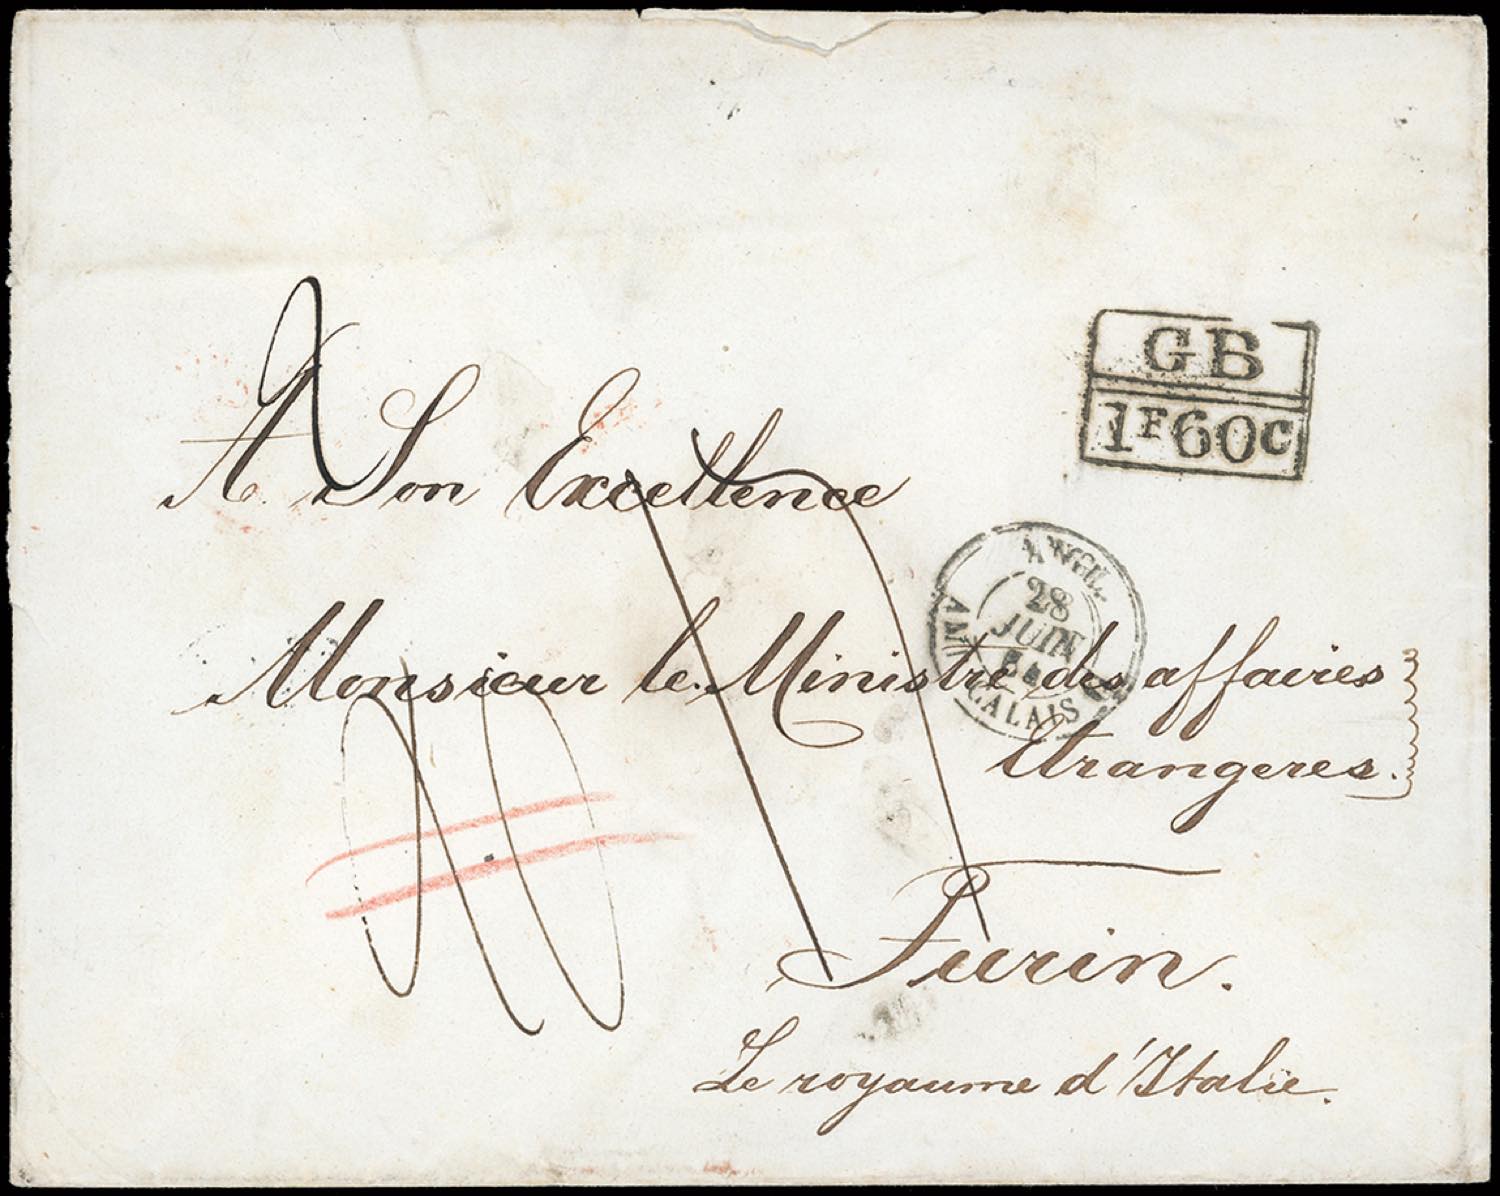 GB
1F60C
A Son Excellence
ANGL.
28
JUIN
AMB. CALAIS
Monsieur le Ministre des affaires
étrangeres.
Turin.
Le royaume d'Italie.